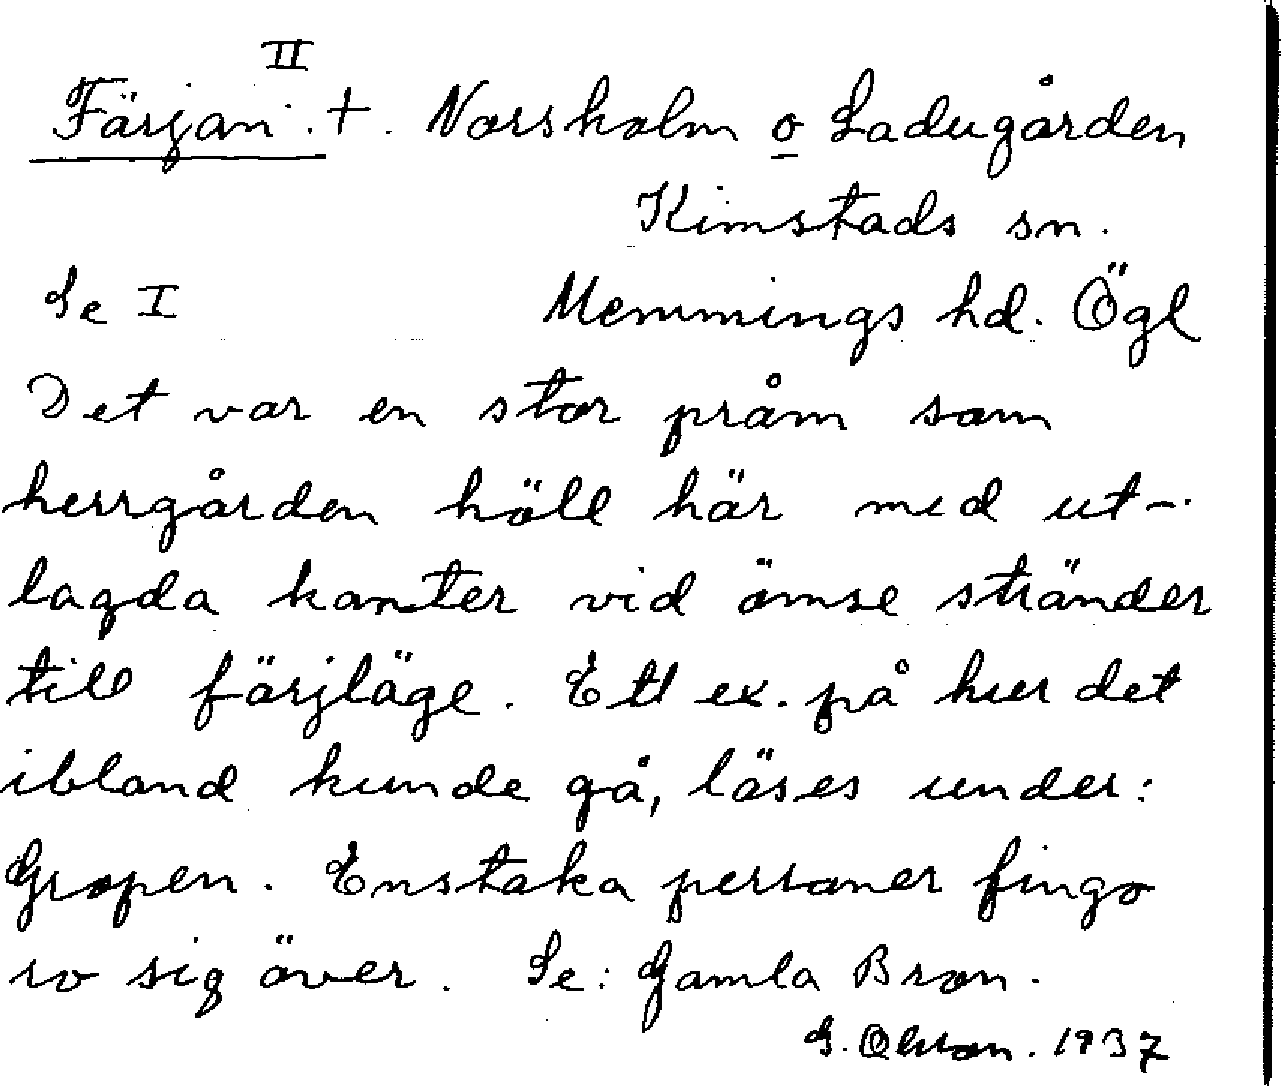 II
Färjan. +. Norsholm o Ladugården
Kimstads sn.
Se I Memmings hd. Ögl
Det var en stor pråm som
herrgården höll här med ut-
lagda kanter vid ömse stränder
till färjläge. Ett ex. på hur det
ibland kunde gå, läses under:
Gropen. Enstaka personer fingo
ro sig över. Se: Gamla Bron.
G. Olsson. 1937